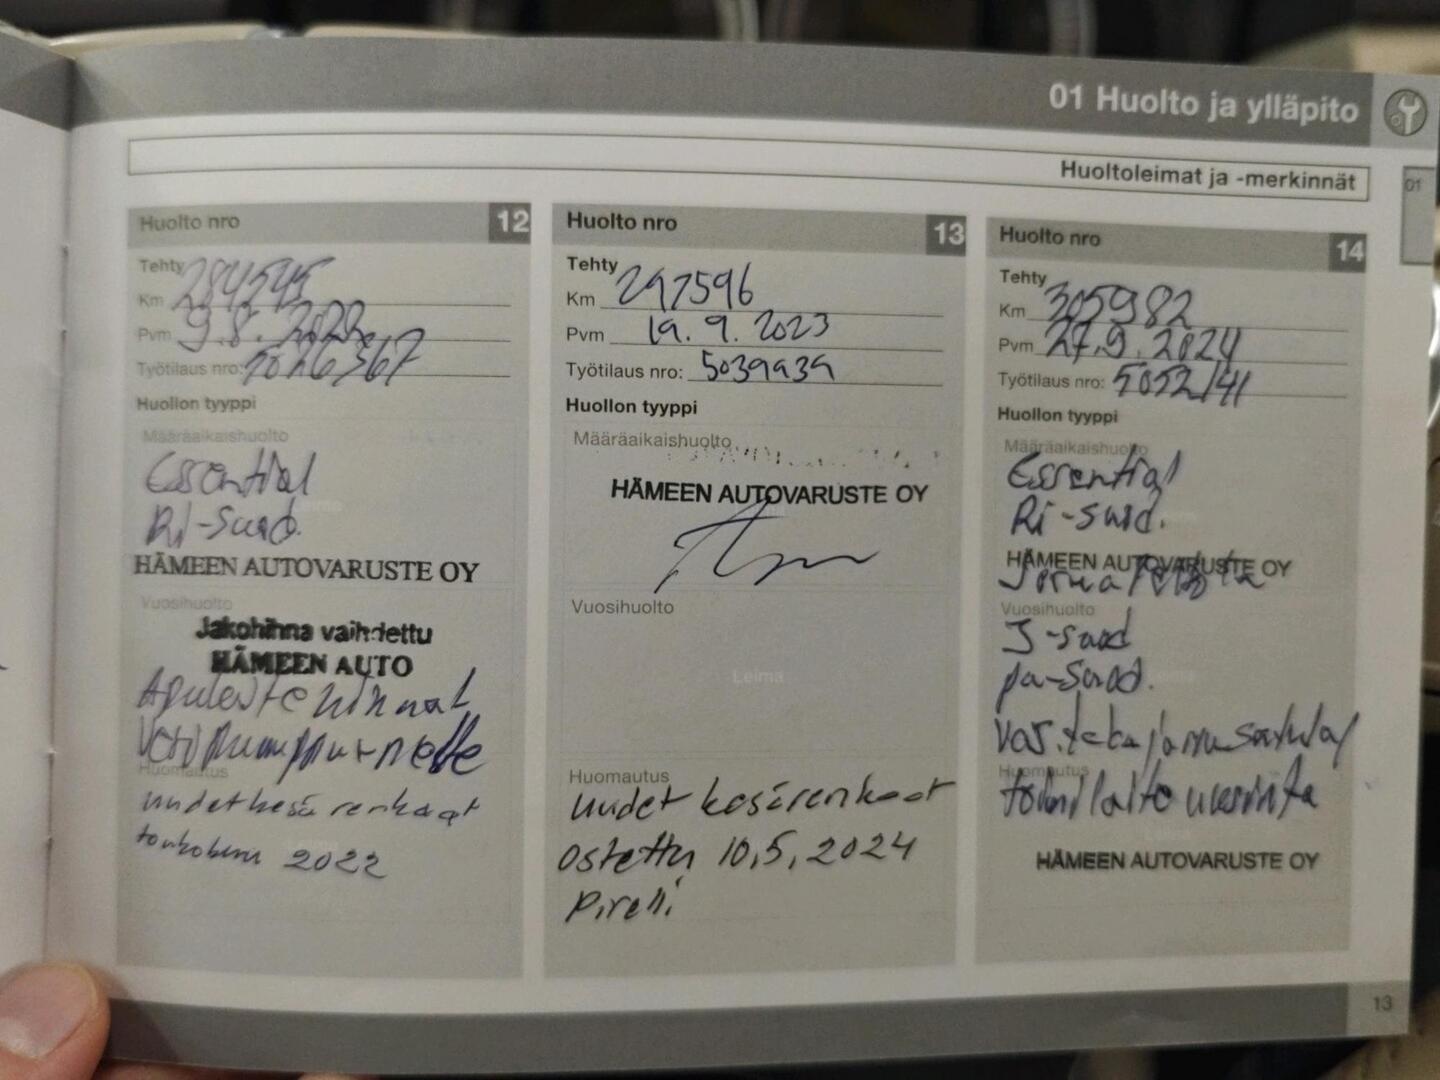 01 Huolto ja ylläpito
Huoltoleimat ja -merkinnät
01
Huolto nro 12
Tehty
Km 284545
Pvm 9.8.2022
Työtilaus nro: 5026367
Huollon tyyppi
Määräaikaishuolto
Essential
Ri-suod.
HÄMEEN AUTOVARUSTE OY
Vuosihuolto
Jakohihna vaihdettu
HÄMEEN AUTO
Apulaitehihnat
Vesipumppu
Huomautus
uudet kesärenkaat
toukokuu 2022
Huolto nro 13
Tehty
Km 297596
Pvm 19.9.2023
Työtilaus nro: 5039939
Huollon tyyppi
Määräaikaishuolto
HÄMEEN AUTOVARUSTE OY
Vuosihuolto
Leima
Huomautus
uudet kesärenkaat
ostettu 10,5,2024
Pirelli
Huolto nro 14
Tehty
Km 305982
Pvm 27.9.2024
Työtilaus nro: 5052141
Huollon tyyppi
Määräaikaishuolto
Essential
Ri-suod.
HÄMEEN AUTOVARUSTE OY
Vuosihuolto
I-suod
pa-suod.
vas. taka jarrusatula
Huomautus
HÄMEEN AUTOVARUSTE OY
13